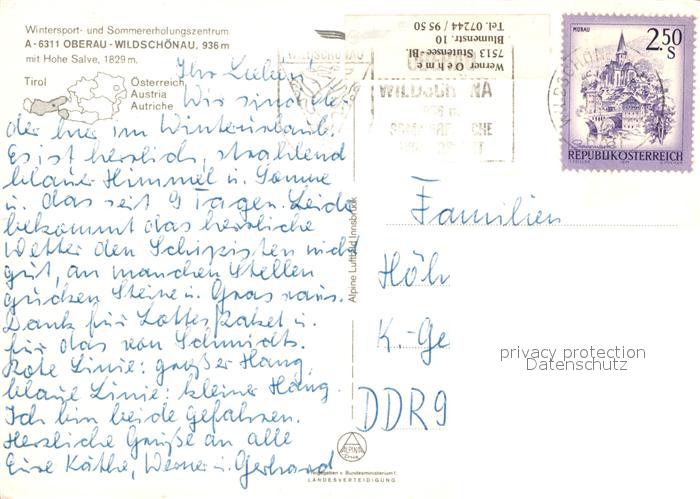 Wintersport- und Sommererholungszentrum
A-6311 OBERAU-WILDSCHÖNAU, 936 m
mit Hohe Salve, 1829 m.
Tirol
Österreich
Austria
Autriche
Ihr Lieben!
Wir sind wie-
der hier im Winterurlaub.
Es ist herrlich, strahlend
blauer Himmel u. Sonne
u. das seit 9 Tagen. Leider
bekommt das herrliche
Wetter den Schipisten nicht
gut, an manchen Stellen
gucken Steine u. Gras raus.
Dank für Lottes Paket u.
für das von Schmidts.
Rote Linie: großer Hang,
blaue Linie: kleiner Hang.
Ich bin beide gefahren.
Herzliche Grüße an alle
Eure Käthe, Werner u. Gerhard
Alpine Luftbild Innsbruck
Werner Oehme
Blumenstr. 10
7513 Stutensee-Bl.
Tel. 07244 / 95 50
WILDSCHÖNAU
WILDSCHÖNA
936 m
MURAU
2,50 S
REPUBLIK ÖSTERREICH
Familien
Höh
K.-Ge
DDR 9
privacy protection
Datenschutz
ALPINA
Freigegeben v. Bundesministerium f.
LANDESVERTEIDIGUNG